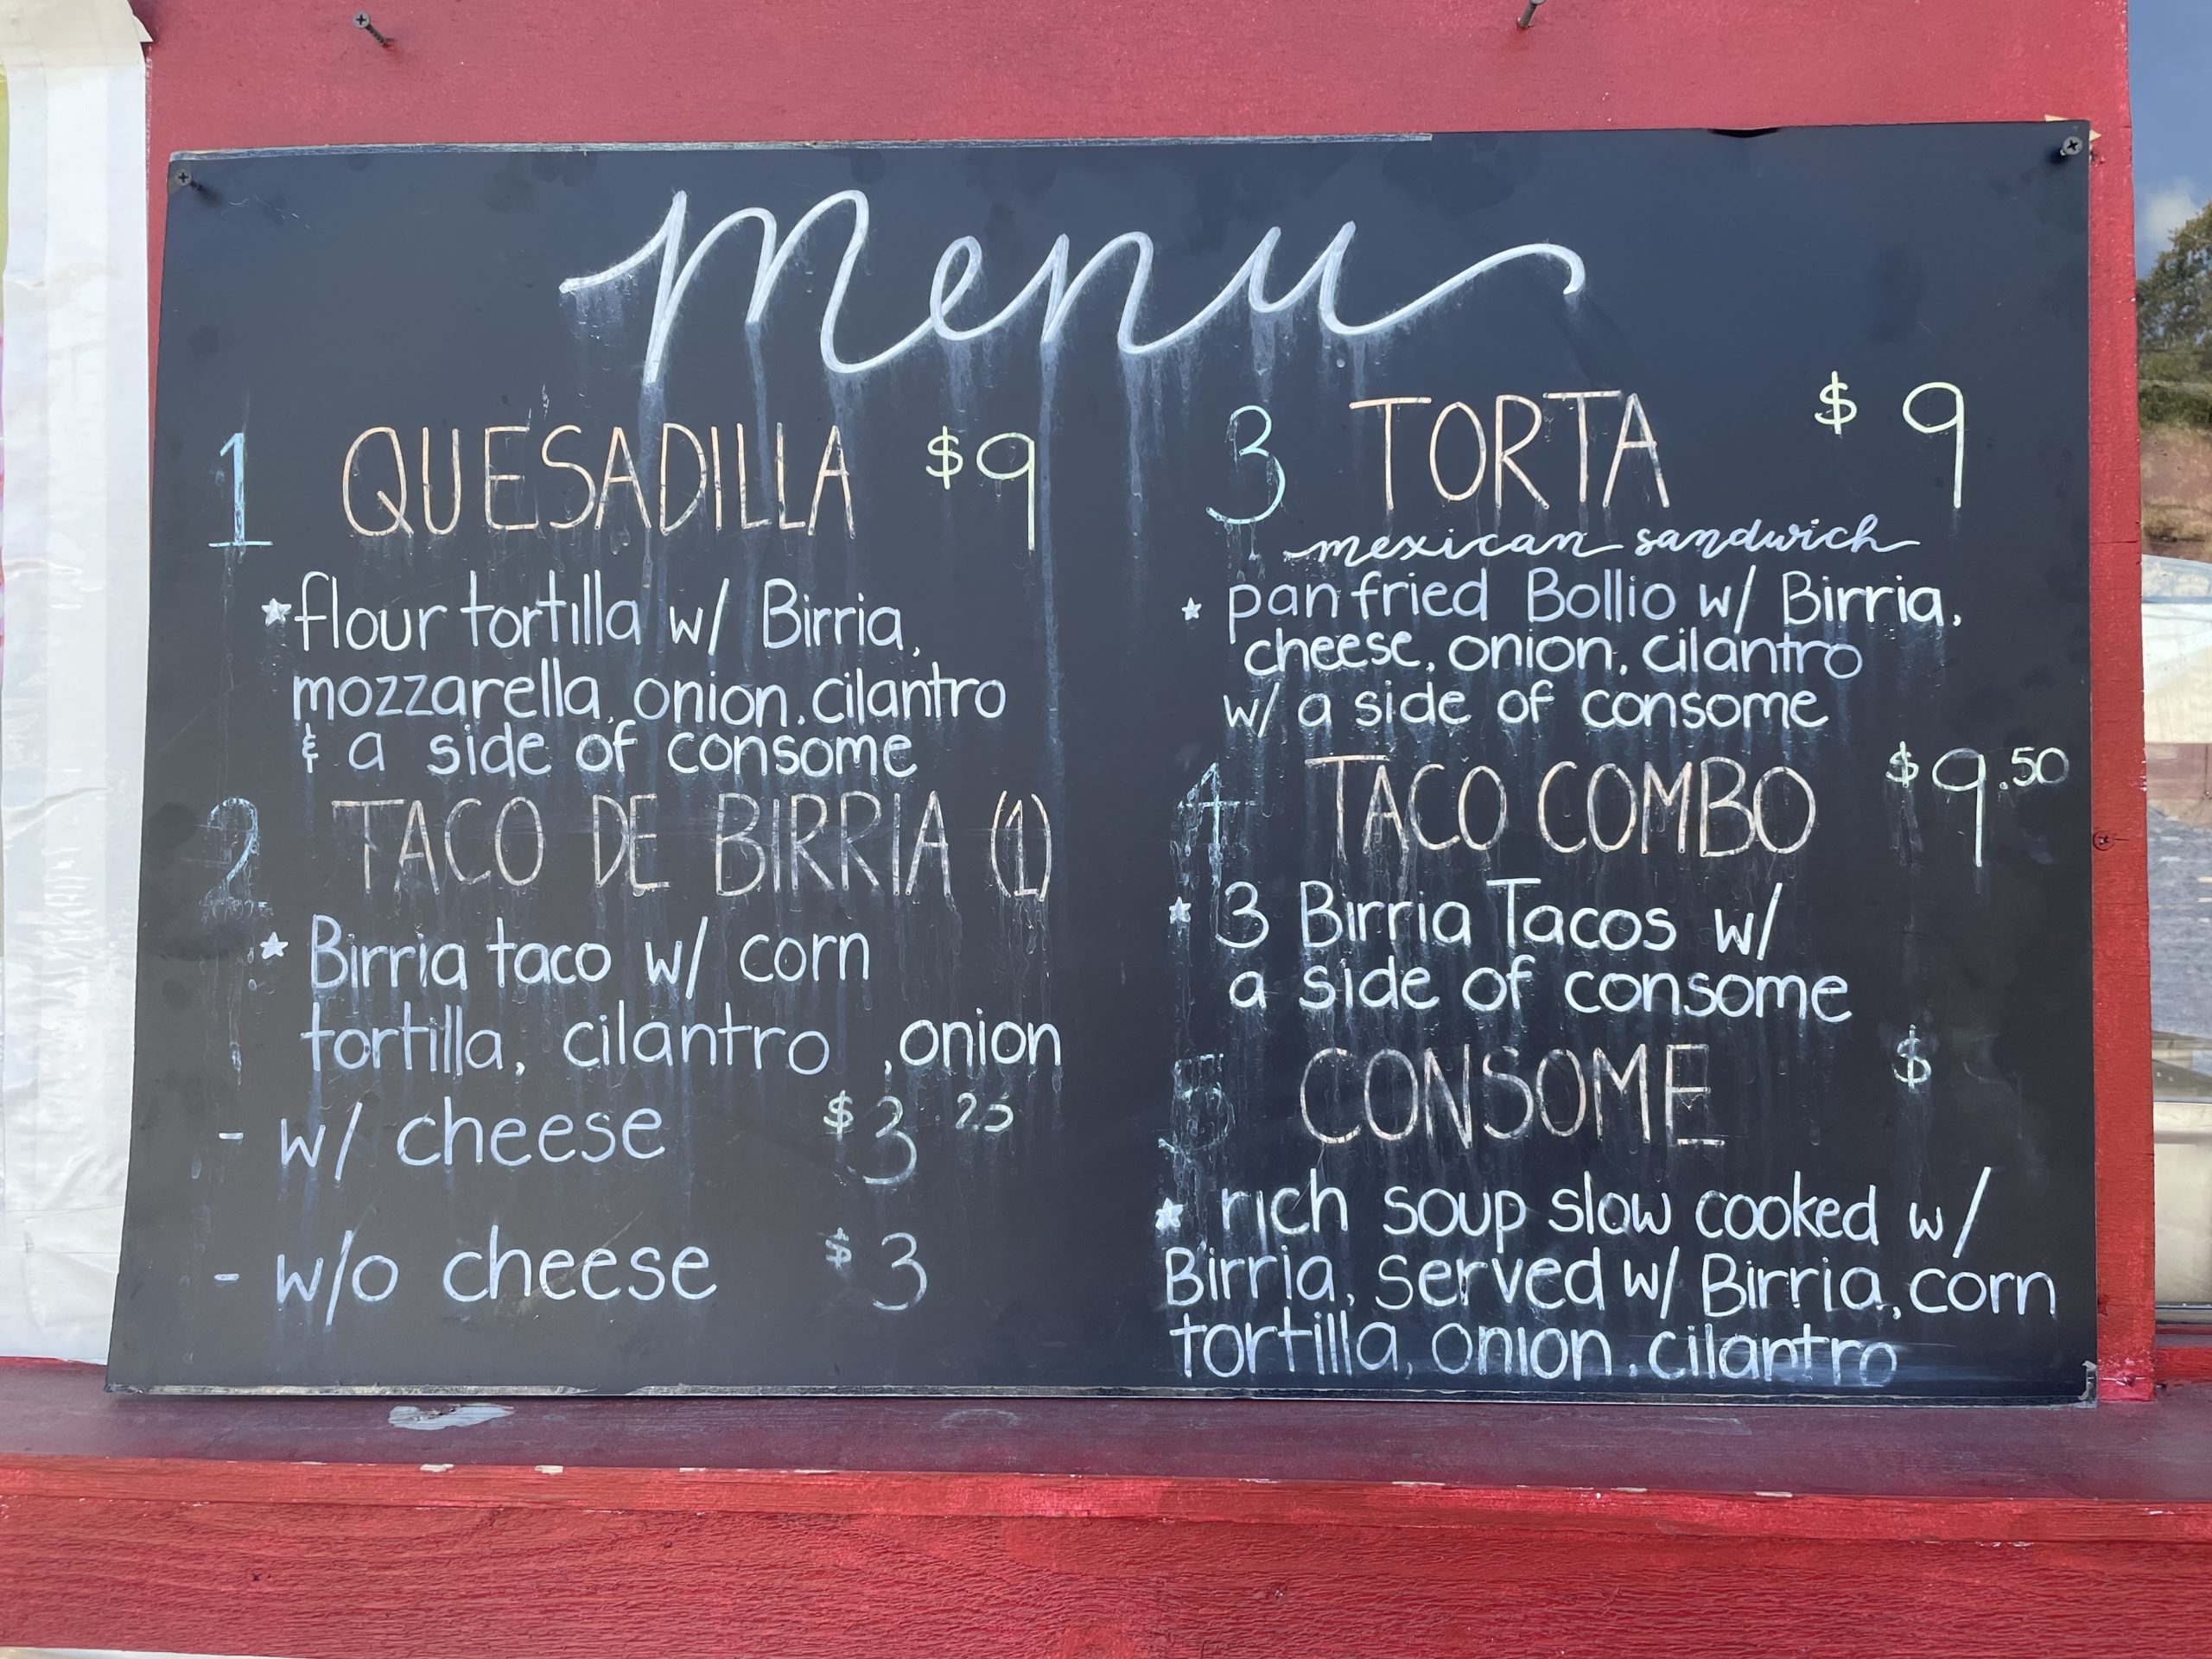 Menu
1 QUESADILLA $9
*flour tortilla w/ Birria,
mozzarella, onion, cilantro
& a side of consome
2 TACO DE BIRRIA (1)
* Birria taco w/ corn
tortilla, cilantro , onion
- w/ cheese $3.25
- w/o cheese $3
3 TORTA $9
mexican sandwich
* pan fried Bollio w/ Birria,
cheese, onion, cilantro
w/ a side of consome
4 TACO COMBO $9.50
* 3 Birria Tacos w/
a side of consome
5 CONSOME $
* rich soup slow cooked w/
Birria, served w/ Birria, corn
tortilla, onion, cilantro